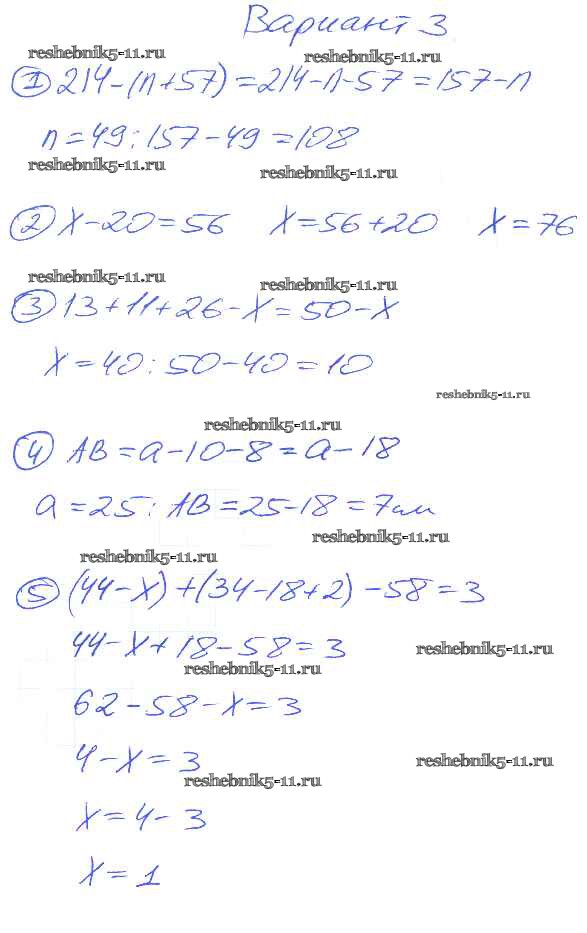 Вариант 3
reshebnik5-11.ru reshebnik5-11.ru
① 214-(n+57)=214-n-57=157-n
n=49: 157-49=108
reshebnik5-11.ru reshebnik5-11.ru
② x-20=56 x=56+20 x=76
reshebnik5-11.ru reshebnik5-11.ru
③ 13+11+26-x=50-x
x=40: 50-40=10
reshebnik5-11.ru
reshebnik5-11.ru
④ AB=a-10-8=a-18
a=25: AB=25-18=7см
reshebnik5-11.ru
reshebnik5-11.ru
⑤ (44-x)+(34-18+2)-58=3
44-x+18-58=3
reshebnik5-11.ru
reshebnik5-11.ru
62-58-x=3
4-x=3
reshebnik5-11.ru
reshebnik5-11.ru
x=4-3
x=1